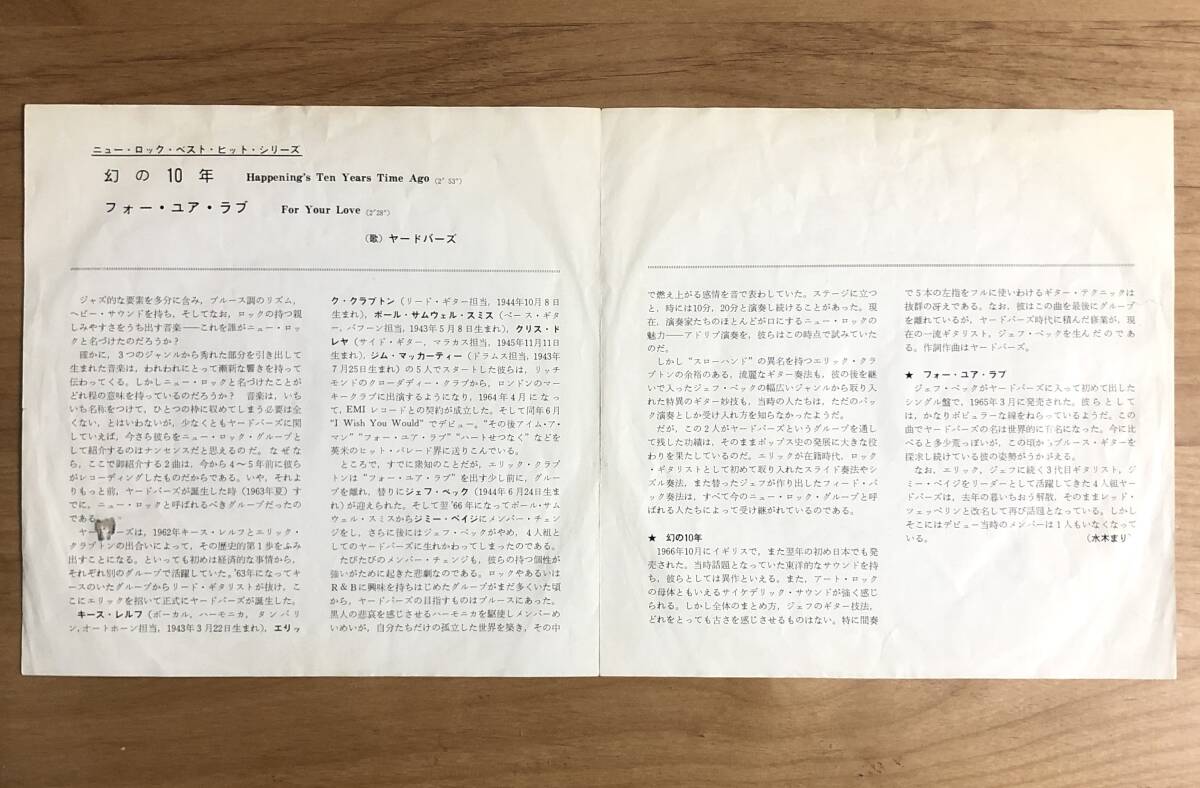 ニュー・ロック・ベスト・ヒット・シリーズ
幻の10年 Happening's Ten Years Time Ago (2'53")
フォー・ユア・ラブ For Your Love (2'28")
(歌) ヤードバーズ
ジャズ的な要素を多分に含み，ブルース調のリズム，
ヘビー・サウンドを持ち，そしてなお，ロックの持つ親
しみやすさをうち出す音楽——これを誰がニュー・ロッ
クと名づけたのだろうか？
確かに，３つのジャンルから秀れた部分を引き出して
生まれた音楽は，われわれにとって瀬新な響きを持って
伝わってくる。しかしニュー・ロックと名づけたことが
どれ程の意味を持っているのだろうか？ 音楽は，いち
いち名称をつけて，ひとつの枠に収めてしまう必要は全
くない，とはいわないが，少なくともヤードバーズに関
していえば，今さら彼らをニュー・ロック・グループと
して紹介するのはナンセンスだと思えるのだ。なぜな
ら，ここで御紹介する２曲は，今から４〜５年前に彼ら
がレコーディングしたものだからである。いや，それよ
りもっと前，ヤードバーズが誕生した時（1963年夏）す
でに，ニュー・ロックと呼ばれるべきグループだったの
である
ヤードバーズは，1962年キース・レルフとエリック・
クラプトンの出合いによって，その歴史的第１歩をふみ
出すことになる。といっても初めは経済的な事情から，
それぞれ別のグループで活躍していた。'63年になってキ
ースのいたグループからリード・ギタリストが抜け，こ
こにエリックを招いて正式にヤードバーズが誕生した。
キース・レルフ（ボーカル，ハーモニカ，タンバリ
ン，オートホーン担当，1943年３月22日生まれ），エリッ
ク・クラプトン（リード・ギター担当，1944年10月８日
生まれ），ポール・サムウェル・スミス（ベース・ギタ
ー，バフーン担当，1943年５月８日生まれ），クリス・ド
レヤ（サイド・ギター，マラカス担当，1945年11月11日
生まれ），ジム・マッカーティー（ドラムス担当，1943年
７月25日生まれ）の５人でスタートした彼らは，リッチ
モンドのクローダディー・クラブから，ロンドンのマー
キークラブに出演するようになり，1964年４月になっ
て，EMI レコードとの契約が成立した。そして同年６月
"I Wish You Would" でデビュー。“その後アイム・ア・
マン”“フォー・ユア・ラブ”“ハートせつなく”などを
英米のヒット・パレード界に送りこんでいる。
ところで，すでに衆知のことだが，エリック・クラプ
トンは“フォー・ユア・ラブ”を出す少し前に，グルー
プを離れ，替りにジェフ・ベック（1944年６月24日生ま
れ）が迎えられた。そして翌'66年になってポール・サム
ウェル・スミスからジミー・ペイジにメンバー・チェン
ジをし，さらに後にはジェフ・ベックがやめ，４人組と
してのヤードバーズに生れかわってしまったのである。
たびたびのメンバー・チェンジも，彼らの持つ個性が
強いがために起きた悲劇なのである。ロックやあるいは
R＆Bに興味を持ちはじめたグループがまだ多くいた頃
から，ヤードバーズの目指すものはブルースにあった。
黒人の悲哀を感じさせるハーモニカを駆使しメンバーめ
いめいが，自分たちだけの孤立した世界を築き，その中
で燃え上がる感情を音で表わしていた。ステージに立つ
と，時には10分，20分と演奏し続けることがあった。現
在，演奏家たちのほとんどが口にするニュー・ロックの
魅力——アドリブ演奏を，彼らはこの時点で試みていた
のだ。
しかし“スローハンド”の異名を持つエリック・クラ
プトンの余裕のある，流麗なギター奏法も，彼の後を継
いで入ったジェフ・ベックの幅広いジャンルから取り入
れた特異のギター妙技も，当時の人たちは，ただのバッ
ク演奏としか受け入れ方を知らなかったようだ。
だが，この２人がヤードバーズというグループを通し
て残した功績は，そのままポップス史の発展に大きな役
わりを果たしているのだ。エリックが在籍時代，ロック
・ギタリストとして初めて取り入れたスライド奏法やシ
ズル奏法，また替ったジェフが作り出したフィード・バ
ック奏法は，すべて今のニュー・ロック・グループと呼
ばれる人たちによって受け継がれているのである。
★ 幻の10年
1966年10月にイギリスで，また翌年の初め日本でも発
売された。当時話題となっていた東洋的なサウンドを持
ち，彼らとしては異作といえる。また，アート・ロック
の母体ともいえるサイケデリック・サウンドが強く感じ
られる。しかし全体のまとめ方，ジェフのギター技法，
どれをとっても古さを感じさせるものはない。特に間奏
で５本の左指をフルに使いわけるギター・テクニックは
抜群の冴えである。なお，彼はこの曲を最後にグループ
を離れているが，ヤードバーズ時代に積んだ修業が，現
在の一流ギタリスト，ジェフ・ベックを生んだのであ
る。作詞作曲はヤードバーズ。
★ フォー・ユア・ラブ
ジェフ・ベックがヤードバーズに入って初めて出した
シングル盤で，1965年３月に発売された。彼らとして
は，かなりポピュラーな線をねらっているようだ。この
曲でヤードバーズの名は世界的に有名になった。今に比
べると多少荒っぽいが，この頃からブルース・ギターを
探求し続けている彼の姿勢がうかがえる。
なお，エリック，ジェフに続く３代目ギタリスト，ジ
ミー・ペイジをリーダーとして活躍してきた４人組ヤー
ドバーズは，去年の暮いちおう解散，そのままレッド・
ツェッペリンと改名して再び話題となっている。しかし
そこにはデビュー当時のメンバーは１人もいなくなって
いる。 （水木まり）